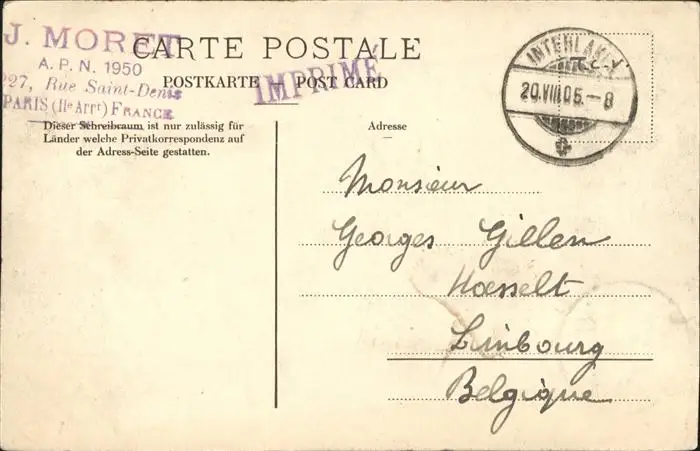 J. MORET
A. P. N. 1950
227, Rue Saint-Denis
PARIS (IIe Arrt) FRANCE
CARTE POSTALE
POSTKARTE
POST CARD
IMPRIMÉ
Dieser Schreibraum ist nur zulässig für
Länder welche Privatkorrespondenz auf
der Adress-Seite gestatten.
Adresse
INTERLAKEN
20.VIII.05.-8
Monsieur
Georges Gillen
Haesselt
Limbourg
Belgique